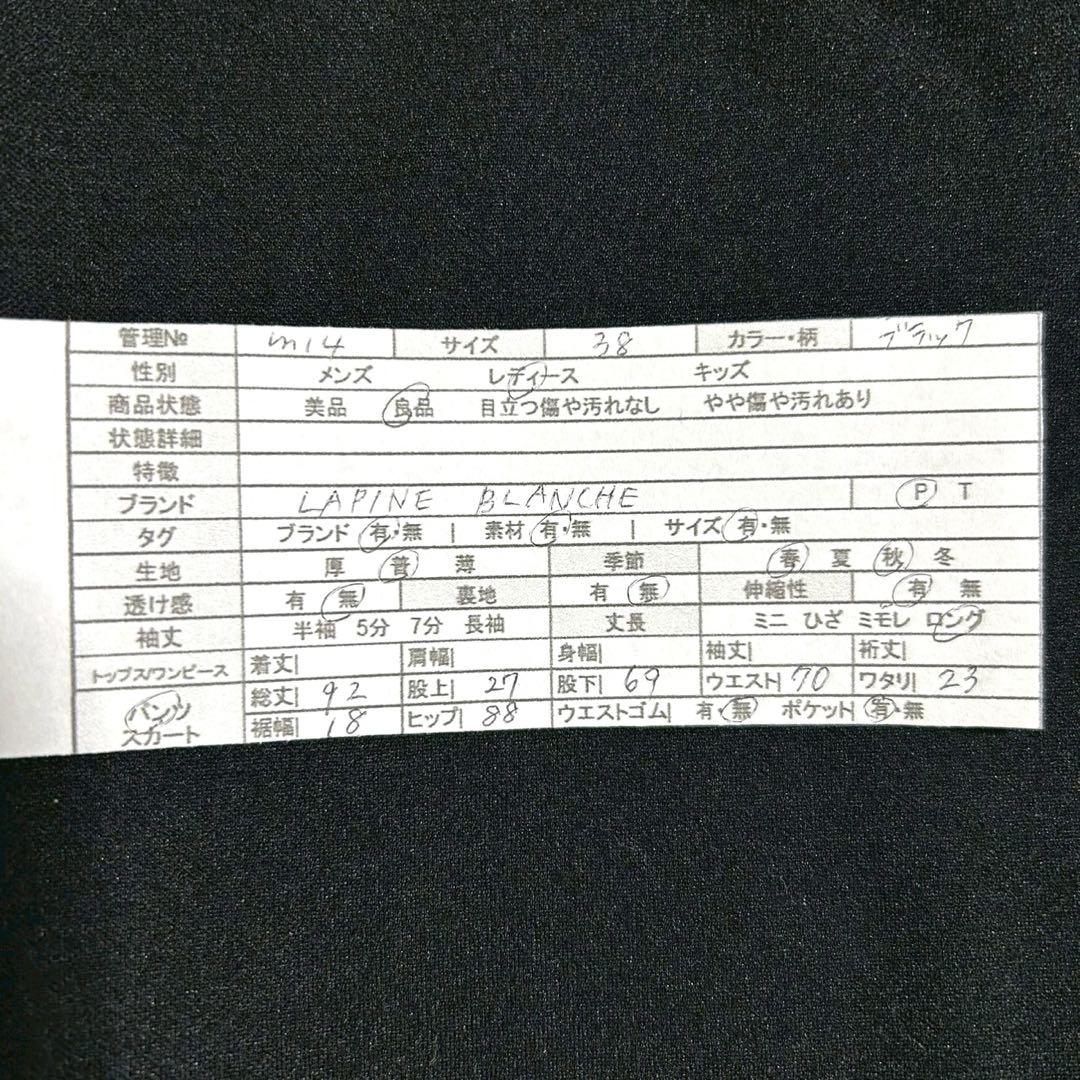 管理№ m14 サイズ 38 カラー・柄 ブラック
性別 メンズ レディース キッズ
商品状態 美品 良品 目立つ傷や汚れなし やや傷や汚れあり
状態詳細
特徴
ブランド LAPINE BLANCHE P T
タグ ブランド 有・無 | 素材 有・無 | サイズ 有・無
生地 厚 普 薄 季節 春 夏 秋 冬
透け感 有 無 裏地 有 無 伸縮性 有 無
袖丈 半袖 5分 7分 長袖 丈長 ミニ ひざ ミモレ ロング
トップス/ワンピース 着丈| 肩幅| 身幅| 袖丈| 裄丈|
パンツ 総丈| 92 股上| 27 股下| 69 ウエスト| 70 ワタリ| 23
スカート 裾幅| 18 ヒップ| 88 ウエストゴム| 有・無 ポケット| 有・無